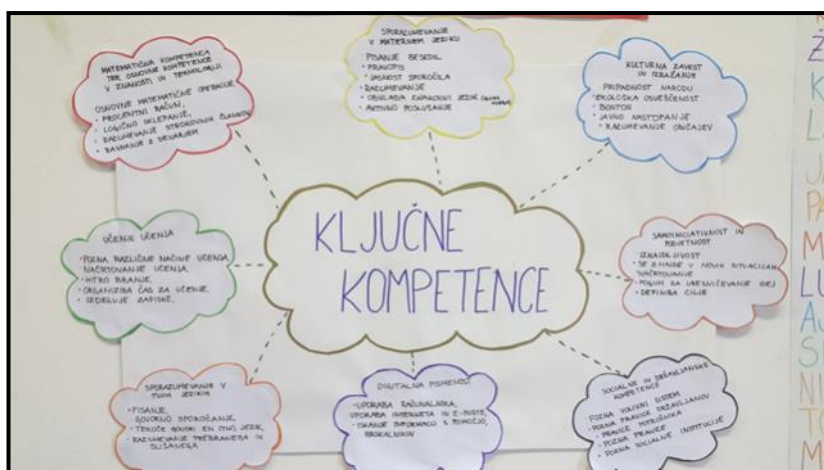 MATEMATIČNA KOMPETENCA
TER OSNOVNE KOMPETENCE
V ZNANOSTI IN TEHNOLOGIJI
OSNOVNE MATEMATIČNE OPERACIJE
• PROCENTNI RAČUN,
• LOGIČNO SKLEPANJE,
• RAZUMEVANJE STROKOVNIH ČLANKOV
• RAVNANJE Z DENARJEM
SPORAZUMEVANJE
V MATERNEM JEZIKU
• PISANJE BESEDIL
• PRAVOPIS
• JASNOST SPOROČILA
• RAZUMEVANJE
• OBVLADA ZNAKOVNI JEZIK
• AKTIVNO POSLUŠANJE
KULTURNA ZAVEST
IN IZRAŽANJE
• PRIPADNOST NARODU
• EKOLOŠKA OSVEŠČENOST
• BONTON
• JAVNO NASTOPANJE
• RAZUMEVANJE OBIČAJEV
UČENJE UČENJA
• POZNA RAZLIČNE NAČINE UČENJA
NAČRTOVANJE UČENJA,
• HITRO BRANJE,
• ORGANIZIRA ČAS ZA UČENJE
• IZDELUJE ZAPISKE,
KLJUČNE
KOMPETENCE
SAMOINICIATIVNOST IN
PODJETNOST
IZNAJDLJIVOST
• SE ZNAJDE V NOVIH SITUACIJAH
NAČRTOVANJE
• POGUM ZA URESNIČEVANJE IDEJ
• DEFINIRA CILJE
SPORAZUMEVANJE V
TUJIH JEZIKIH
• PISANJE,
GOVORNO SPOROČANJE,
• TEKOČE GOVORI EN TUJ JEZIK,
• RAZUMEVANJE PREBRANEGA IN
SLIŠANEGA
DIGITALNA PISMENOST
• UPORABA RAČUNALNIKA,
UPORABA INTERNETA IN E-POŠTE,
• ISKANJE INFORMACIJ S POMOČJO
BRSKALNIKOV
SOCIALNE IN DRŽAVLJANSKE
KOMPETENCE
POZNA VOLIVNI SISTEM
• POZNA PRAVICE DRŽAVLJANOV
• PRAVICE POTROŠNIKA
• POZNA PRAVICE
• POZNA SOCIALNE INSTITUCIJE